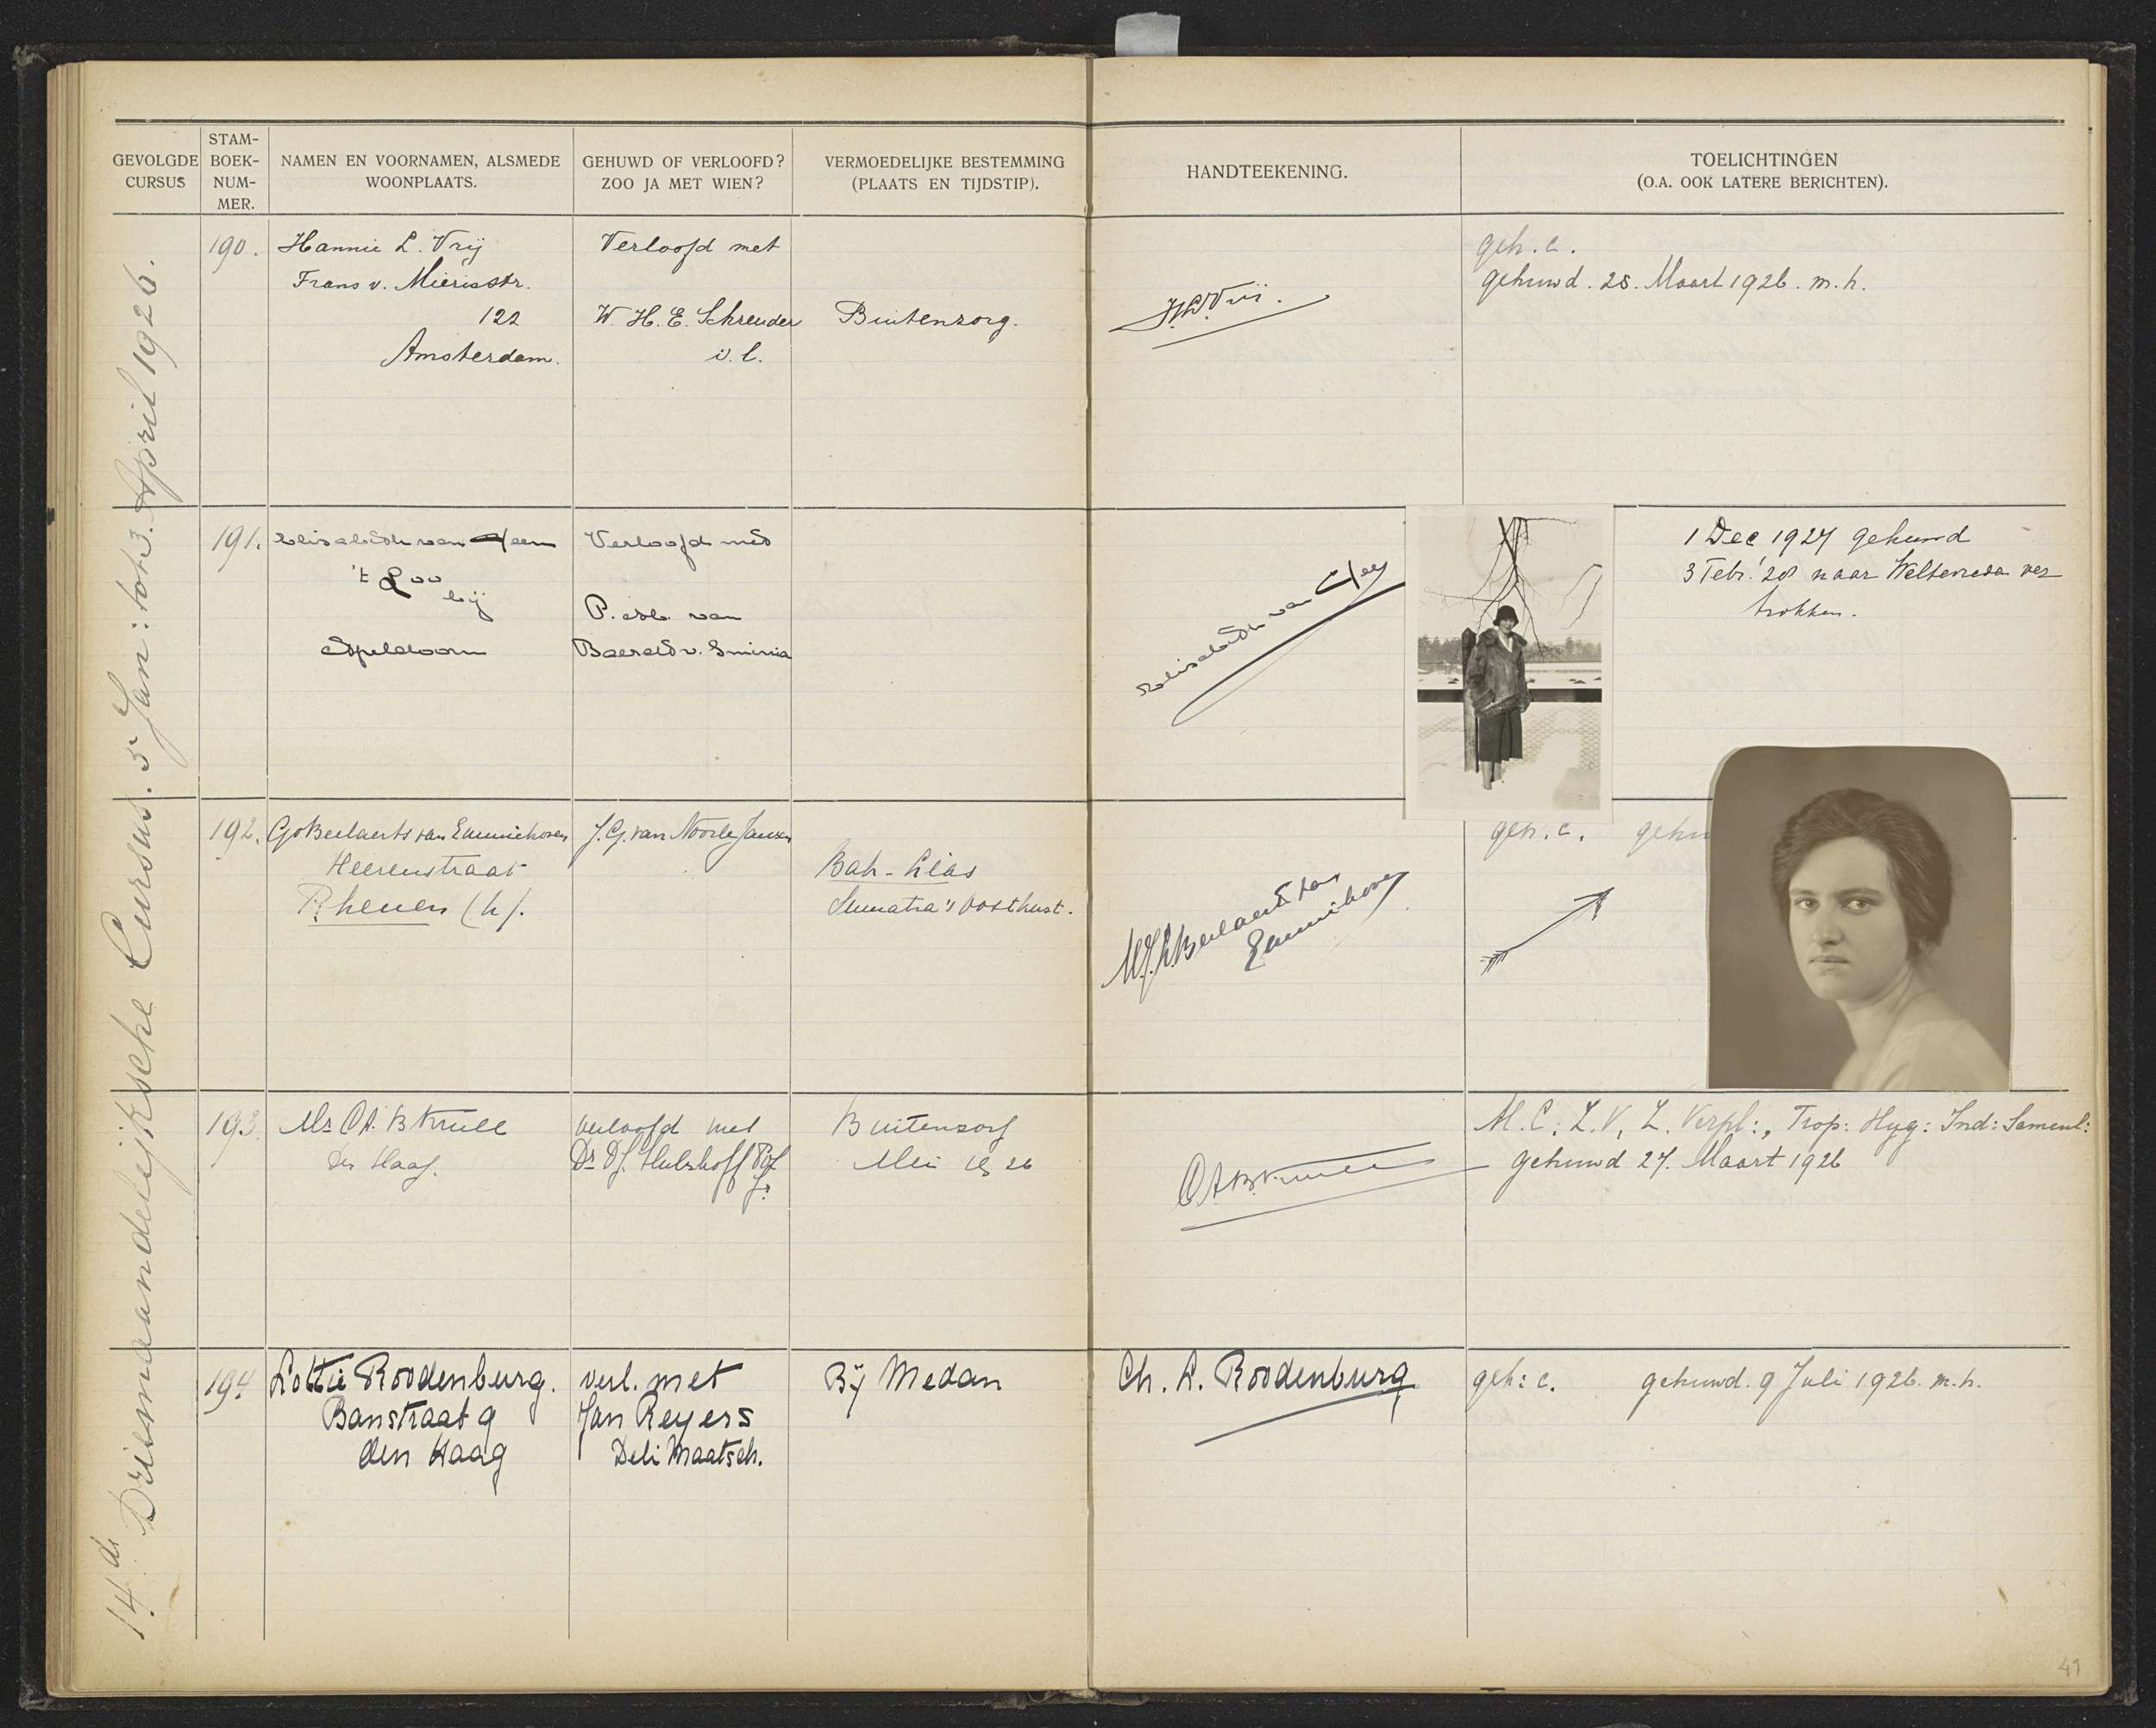 GEVOLGDE CURSUS
STAM-BOEK-NUM-MER.
NAMEN EN VOORNAMEN, ALSMEDE WOONPLAATS.
GEHUWD OF VERLOOFD? ZOO JA MET WIEN?
VERMOEDELIJKE BESTEMMING (PLAATS EN TIJDSTIP).
HANDTEEKENING.
TOELICHTINGEN (O.A. OOK LATERE BERICHTEN).
14de Driemaandelijksche Cursus. 5 Jan: tot 3. April 1926.
190.
Hannie L. Vrij
Frans v. Mierisstr.
122
Amsterdam.
Verloofd met
W. H. E. Schreuder
i. l.
Buitenzorg.
H.L. Vrij.
geh. c.
gehuwd. 25. Maart 1926. m. h.
191.
Elisabeth van Heen
't Loo
bij
Apeldoorn
Verloofd met
P. van
Baerdt v. Sminia
Elisabeth van
1 Dec 1927 gehuwd
3 Febr. '28 naar Weltevreden ver
trokken.
192.
Go Beelaerts van Emmichoven
Heerenstraat
Rhenen (U).
J. G. van Noorle Jansen
Bah-Lias
Sumatra's Oostkust.
Beelaerts van
Emmichoven
geh. c.
193.
Mr C.A.B. Krull
Den Haag.
verloofd met
Dr D.J. Hulshoff Pol
Jr
Buitenzorg
Mei 1926
C A B Krull
M. C: L. V, L. Verpl:, Trop: Hyg: Ind: Samenl:
gehuwd 27. Maart 1926
194
Lottie Roodenburg.
Banstraat 9
den Haag
verl. met
Jan Reyers
Deli Maatsch.
Bij Medan
Ch. L. Roodenburg
geh: c. gehuwd. 9 Juli 1926. m. h.
41